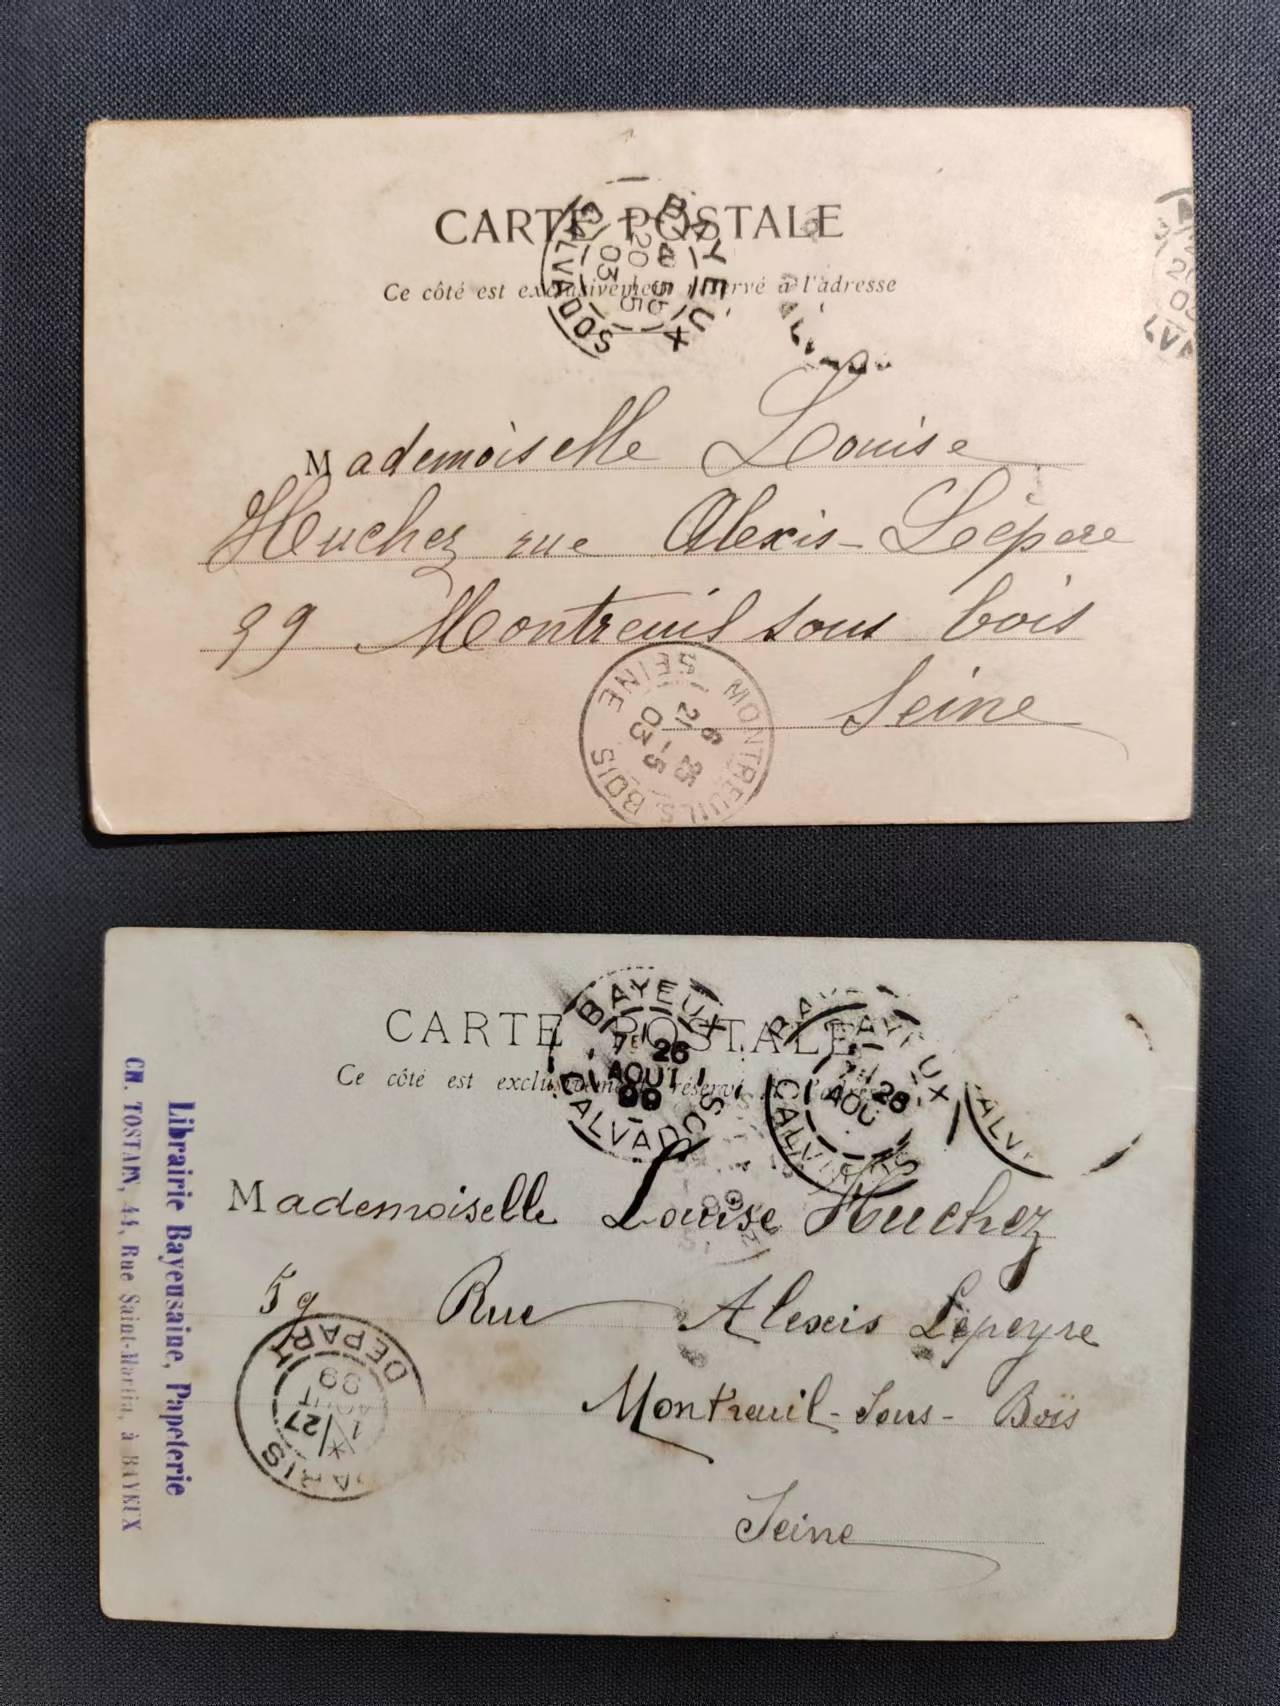 CARTE POSTALE
Ce côté est exclusivement réservé à l'adresse
BAYEUX
CALVADOS
20
03
Mademoiselle Louise
Huchez rue Alexis Lépere
99 Montreuil sous bois
Seine
MONTREUIL S. BOIS
SEINE
6 25
21 - 5
03
CARTE POSTALE
Ce côté est exclusivement réservé à l'adresse
BAYEUX
7E 26
AOUT
99
CALVADOS
BAYEUX
7E 26
AOU
CALVADOS
Mademoiselle Louise Huchez
59 Rue Alexis Lepeyre
Montreuil-Sous-Bois
Seine
PARIS
DEPART
1 27
AOUT
99
Librairie Bayeusaine, Papeterie
CH. TOSTAIN, 44, Rue Saint-Martin, à BAYEUX